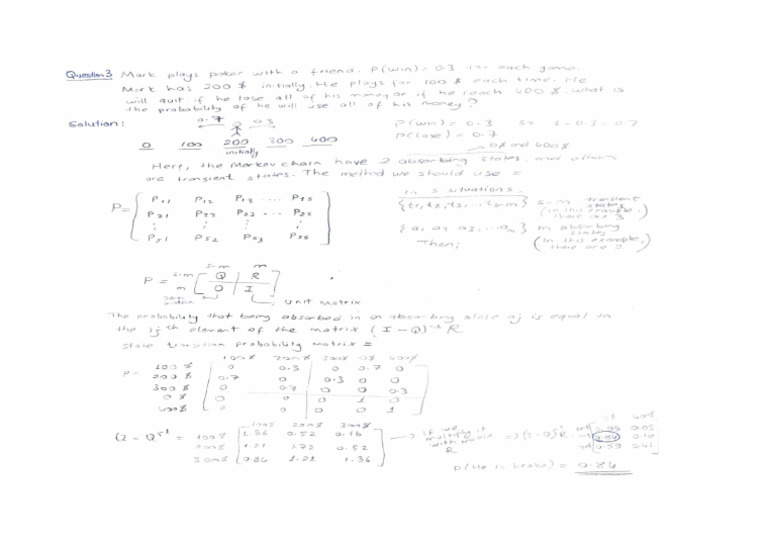 Question3 Mark plays poker with a friend. P(win)=0.3 in each game.
Mark has 200 $ initially. He plays for 100 $ each time. He
will quit if he lose all of his money or if he reach 400 $. what is
the probability of he will use all of his money?
Solution:
0.7 0.3
0 100 200 300 400
initially
P(win) = 0.3 so 1-0.3=0.7
P(lose) = 0.7
0$ and 400$
Here, the Markov chain have 2 absorbing states, and
are transient states. The method we should use =
In s situations,
P= P11 P12 P13 ... P1s
P21 P22 P23 ... P2s
Ps1 Ps2 Ps3 Pss
{t1, t2, t3, ...ts-m} s-m transient states
(in this example, there are 3)
{a1 a2 a3 ...am} m absorbing states
(in this example, there are 2)
Then;
s-m m
P = s-m Q R
m O I
zero matrix unit matrix
The probability that being absorbed in an absorbing state aj is equal to
the ijth element of the matrix (I-Q)⁻¹R
state transition probability matrix =
100$ 200$ 300$ 0$ 400$
P= 100 $ 0 0.3 0 0.7 0
200 $ 0.7 0 0.3 0 0
300 $ 0 0.7 0 0 0.3
0 $ 0 0 0 1 0
400$ 0 0 0 0 1
100$ 200$ 300$
(I-Q)⁻¹ = 100$ 1.36 0.52 0.16
200$ 1.21 1.72 0.52
300$ 0.84 1.21 1.36
if we multiply it with matrix R
=> (I-Q)⁻¹R
0.95 0.05
0.84 0.16
0.59 0.41
P(He is broke) = 0.84